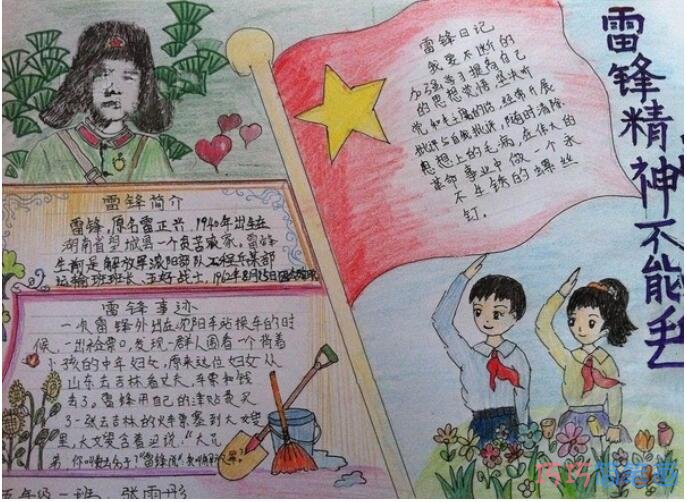 雷锋精神不能丢
雷锋日记
我要不断的
加强学习提高自己
的思想觉悟坚决听
党和主席的话,经常开展
批评与自我批评,随时清除
思想上的毛病,在伟大的
革命事业中做一个永
不生锈的螺丝
钉。
雷锋简介
雷锋,原名雷正兴,1940年出生在
湖南省望城县一个贫苦农家。雷锋
生前是解放军沈阳部队工程兵某部
运输班班长、五好战士,1962年8月15日
雷锋事迹
一次雷锋外出在沈阳车站换车的时
候,一出检票口,发现一群人围着一个背着
小孩的中年妇女,原来这位妇女从
山东去吉林看丈夫,车票和钱
丢了。雷锋用自己的津贴费买
了一张去吉林的火车票塞到大嫂
里,大嫂含着泪说:“大兄
弟,你叫什么名字
五年级一班 张雨彤